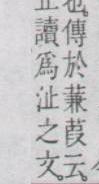 也傳於蒹葭云
讀爲沚之文